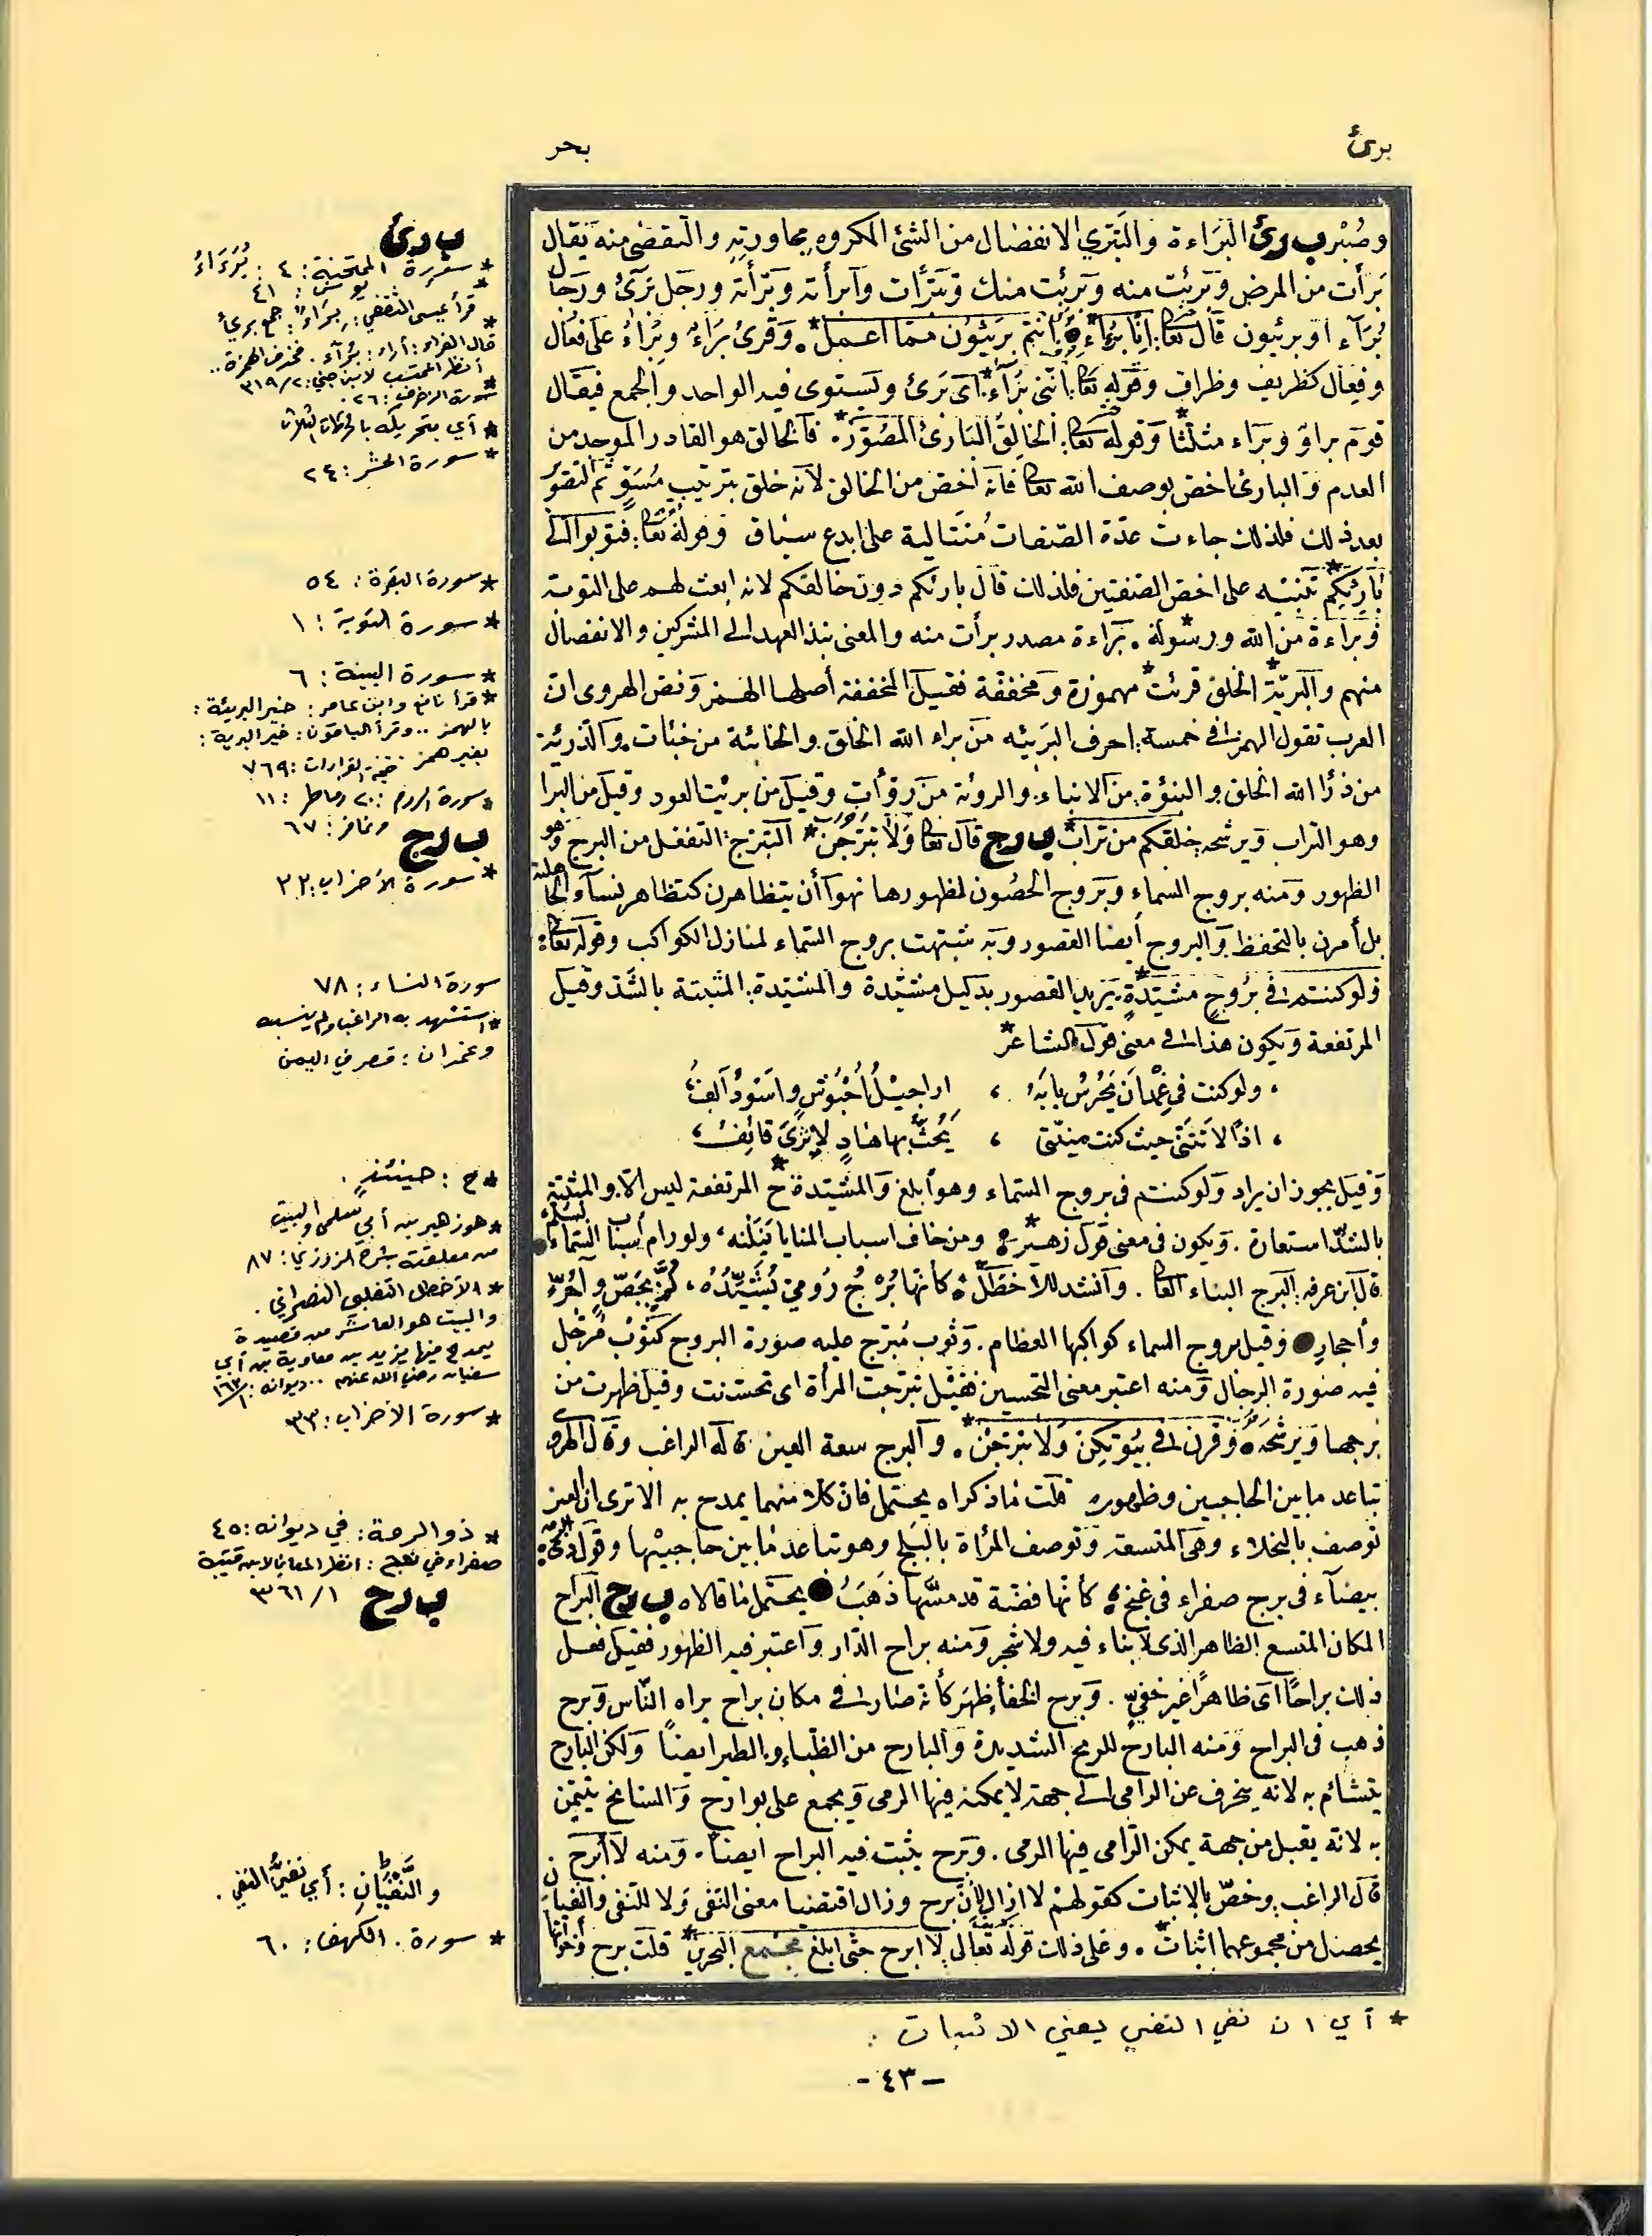 برئ
بحر
وصُبْر ب ر ئ البَرَاءة والتَبَرّي الانفصال من الشئ المكروه مجاورته والتقصّى منه يقال
بَرأت من المرض وبَرِئت منه وبَرِئت منك وتبَرّأت وأبرأته وبَرّأته ورجل بَرئ ورجال
بُرَآء او بريئون قال تعا: إنّا بُرَآء* أنتم بريئون مما اعمل*. وقرئ بَرَاء وبُرَاء على فُعال
وفِعال كظريف وظراف وقوله تعا: إنّنى بَرَآء* اى برئ ويستوى فيه الواحد والجمع فيقال
قوم براؤ وبراء مثلّثا* وقوله تعا: الخالِقُ البَارئ المصَوّر*. فالخالق هو القادر الموجد من
العدم والبارئ اخص بوصف الله تعا فانه اخصّ من الخالق لانه خلق بترتيب مُسَوٍّ ثم التصوّر
بعد ذلك فلذلك جاءت عدّة الصّفات مُتتالية على ابدع سياق وقوله تعا: فتوبوا الى
بَارِئِكم* تنبيه على اخصّ الصفتين فلذلك قال بارئكم دون خالقكم لانه ابعث لهم على التوبة
وبَراءة من الله ورسوله*. بَرَاءة مصدر برأت منه والمعنى نبذ العهد الى المشركين والانفصال
منهم والبَريّة* الخلق قرئت* مهموزة ومخففة فقيل المخففة أصلها الهمز ونص الهروى ان
العرب تقول الهمز فى خمسة احرف البَريئه من براء الله الخلق والخابئة من خبئات والذريئة
من ذرأ الله الخلق والنبؤة من الانباء والروئة من روّأت وقيل من بريت العود وقيل من البرا
وهو التراب ويرشحه خلقكم من تراب* ب ر ج قال تعا ولا تبرّجن* التبرّج: التفعّل من البرج وهو
الظهور ومنه بروج السماء وبروج الحصون لظهورها نهوا أن يتظاهرن كتظاهر نساء الجاهلية
بل أمرن بالتحفظ والبروج أيضا القصور وبه شبّهت بروج السماء لمنازل الكواكب وقوله تعا:
ولو كنتم فى بُروجٍ مشيّدة* يريد القصور بدليل مشيّدة والمشيّدة: المثبتة بالشّد وقيل
المرتفعة ويكون هذا فى معنى قول الشاعر*
، ولو كنت فى غُمدان يَحْرُسُ بابَه ، اراجيلُ أحْبُوشٍ واسْودُ آلِفُ
، اذًا لاتَتنى حيث كنت منيّتى ، يَحُثّ بها هادٍ لإثرىَ قائفُ ،
وقيل يجوز ان يراد ولو كنتم فى بروج السماء وهو أبلغ والمشيّدة ح* المرتفعة ليس الا والمثبتة
بالشدّ استعارة. ويكون فى معنى قول زهير* ومن خاف اسباب المنايا يَنَلْنَه، ولو رام أسباب السماء بسلّم،
قال ابن عرفه: البرج البناء العال. وأنشد للأخطل* كأنها بُرْجُ رُومىّ يُشَيِّدُه، لُزَّ بجَصّ وآجُرّ
وأحجارِ وقيل بروج السماء كواكبها العظام. وثوب مُبَرّج عليه صورة البروج كثوب مُرَجّل
فيه صورة الرجال ومنه اعتبر معنى التحسين فقيل تبرّجت المرأة اى تحسّنت وقيل ظهرت من
برجها ويرشحه وقرن فى بيُوتكن ولا تبرّجْن*. والبرج سعة العين قاله الراغب وقال الهروى
تباعد ما بين الحاجبين وظهوره قلت ما ذكراه يحتمل فان كلا منهما يمدح به الا ترى ان العين
توصف بالنجلاء وهى المتسعة وتوصف المرأة بالبَلَج وهو تباعد ما بين حاجبيْها وقول ذى الرمة*
بيضآء فى برج صفراء فى غَنَجٍ كأنها فضّة قد مسّها ذَهَبُ يحتمل ما قالاه ب ر ح البَراح
المكان المتسع الظاهر الذى لا بناء فيه ولا شجر ومنه براح الدّار واعتبر فيه الظهور فقيل فعل
ذلك براحًا اى ظاهرًا غير خفىّ. وبرح الخفأ ظهر كأنه صار فى مكان براح يراه النّاس وبرح
ذهب فى البراح ومنه البارح للريح الشديدة والبارح من الظباء والطير ايضاً ولكن البارح
يتشائم به لانه ينحرف عن الرامى الى جهة لا يمكنه فيها الرمى ويجمع على بوارح والسّانح يتيمّن
به لانه يقبل من جهة يمكن الرّامى فيها الرمى. وبَرح يثبت فيه البراح ايضاً. ومنه لا أبرح
قال الراغب وخصّ بالاثبات كقولهمْ لا ازال لأن برح وزال اقتضيا معنى النّفى ولا للنفى والنفيان
يحصل من مجموعهما اثبات*. وعلى ذلك قوله تعالى لا ابرح حتى ابلغ مجمع البحرين* قلت برح واخواتها
ب ر ئ
* سورة الممتحنة: ٤ : بُرَءَاءُ
* يونس: ٤١
* قرأ عيسى الثقفي: بِرَاء: جمع بريء
قال الفراء: أراد: بُرَآء. فحذف الهمزة..
أنظر المحتسب لابن جني: ٢/ ٣١٩
* سورة الزخرف: ٢٦.
* أي بتحريكه بالحركات الثلاث
* سورة الحشر: ٢٤
* سورة البقرة: ٥٤
* سورة التوبة: ١
* سورة البينة: ٦
* قرأ نافع وابن عامر: خير البريئة:
بالهمز.. وقرأ الباقون: خير البرية:
بغير همز حجة القراءات: ٧٦٩
* سورة الروم: ٢٠ وفاطر: ١١
وغافر: ٦٧
ب ر ج
* سورة الأحزاب: ٣٢
سورة النساء: ٧٨
* استشهد به الراغب ولم ينسبه
وغمدان: قصر في اليمن
* ح: حينئذٍ.
* هو زهير بن أبي سلمى والبيت
من معلقته بشرح الزوزني: ٨٧
* الأخطل التغلبي النصراني.
والبيت هو العاشر من قصيدة
يمدح فيها يزيد بن معاوية بن أبي
سفيان رضي الله عنهم.. ديوانه:
* سورة الأحزاب: ٣٣
* ذو الرمة: في ديوانه: ٤٥
صفراء في نعج: انظر المعاني لابن قتيبة
١/ ٣٦١
ب ر ح
والنَّفْيَانِ: أي نفيُ النفي.
* سورة الكهف: ٦٠
* أي ان نفي النفي يعني الاثبات.
- ٤٣ -